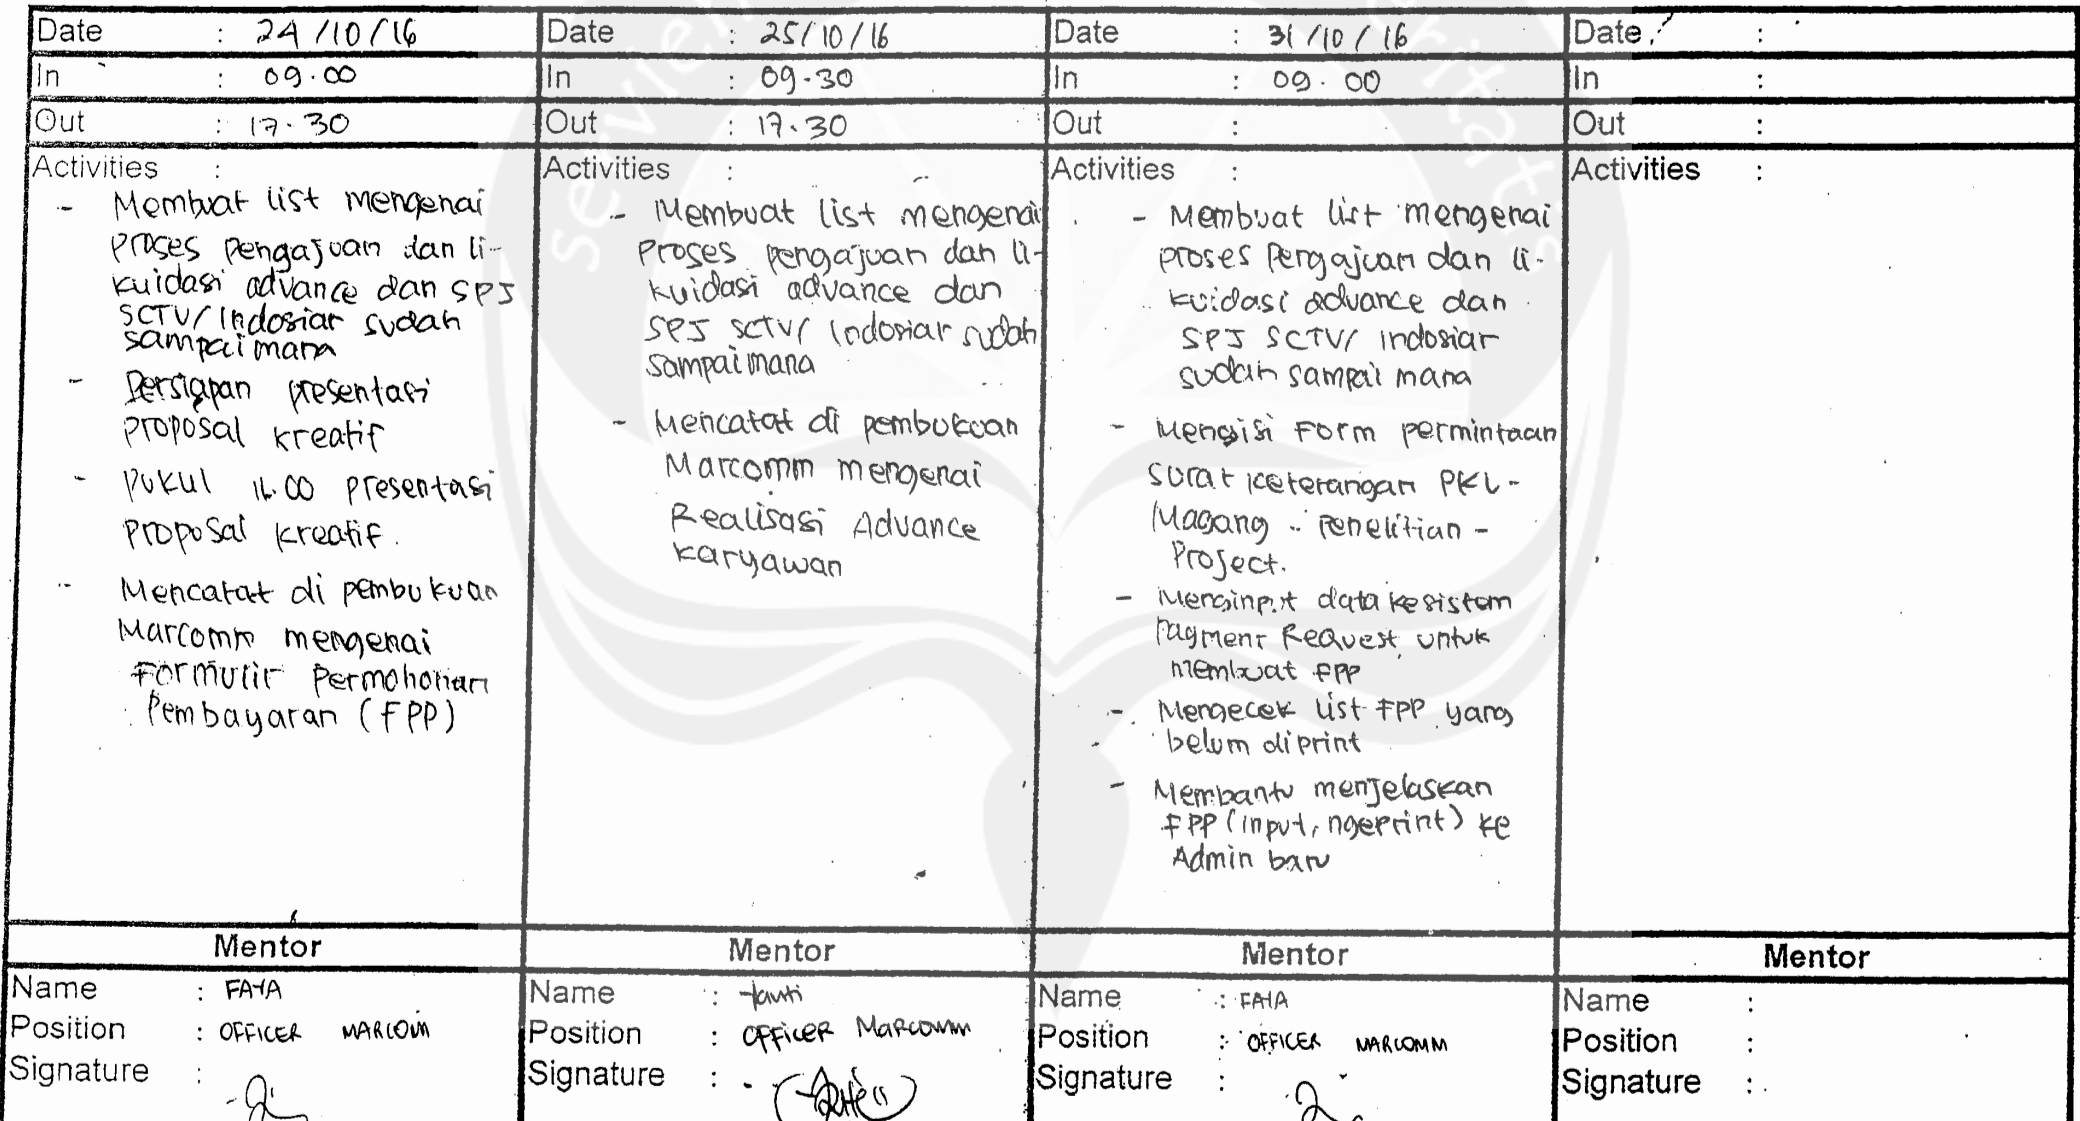 Date : 24/10/16
In : 09.00
Out : 17.30
Activities :
- Membuat list mengenai
proses pengajuan dan li-
kuidasi advance dan SPJ
SCTV/Indosiar sudah
sampai mana
- Persiapan presentasi
proposal kreatif
- Pukul 16.00 presentasi
proposal kreatif.
- Mencatat di pembukuan
Marcomm mengenai
Formulir Permohonan
Pembayaran (FPP)
Mentor
Name :
Position : OFFICER MARCOM
Signature :
Date : 25/10/16
In : 09.30
Out : 17.30
Activities :
- Membuat list mengenai
proses pengajuan dan li-
kuidasi advance dan
SPJ SCTV/ Indosiar sudah
sampai mana
- Mencatat di pembukuan
Marcomm mengenai
Realisasi Advance
karyawan
Mentor
Name :
Position : OFFICER Marcomm
Signature :
Date : 31/10/16
In : 09.00
Out :
Activities :
- Membuat list mengenai
proses pengajuan dan li-
kuidasi advance dan
SPJ SCTV/ Indosiar
sudah sampai mana
- Mengisi Form permintaan
surat keterangan PKL-
Magang - Penelitian -
Project.
- Menginput data ke sistem
Payment Request untuk
membuat FPP
- Mengecek list FPP yang
belum diprint
- Membantu menjelaskan
FPP (input, ngeprint) ke
Admin baru
Mentor
Name :
Position : OFFICER MARCOMM
Signature :
Date :
In :
Out :
Activities :
Mentor
Name :
Position :
Signature :